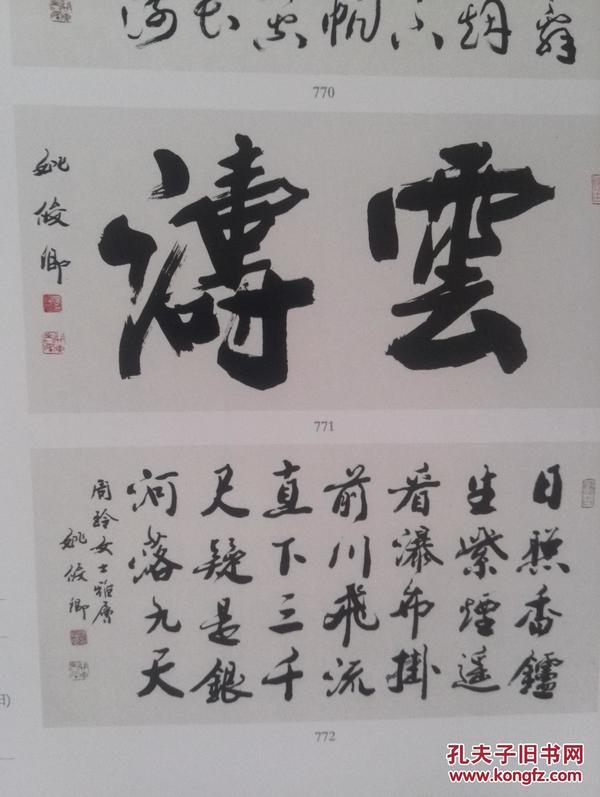 770
雲濤
姚俊卿
771
日照香鑪
生紫煙遥
看瀑布掛
前川飛流
直下三千
尺疑是銀
河落九天
周玲女士雅屬
姚俊卿
772
日)
孔夫子旧书网
www.kongfz.com